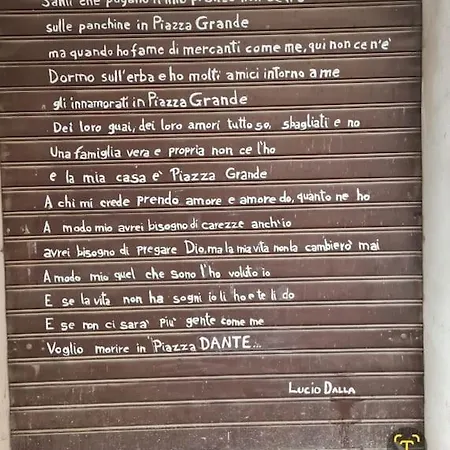 Santi che pagano il mio pranzo non ce n'è
sulle panchine in Piazza Grande
ma quando ho fame di mercanti come me, qui non ce n'è
Dormo sull'erba e ho molti amici intorno a me
gli innamorati in Piazza Grande
Dei loro guai, dei loro amori tutto so, sbagliati e no
Una famiglia vera e propria non ce l'ho
e la mia casa è Piazza Grande
A chi mi crede prendo amore e amore do, quanto ne ho
A modo mio avrei bisogno di carezze anch'io
avrei bisogno di pregare Dio, ma la mia vita non la cambierò mai
A modo mio quel che sono l'ho voluto io
E se la vita non ha sogni io li ho e te li do
E se non ci sarà più gente come me
Voglio morire in Piazza DANTE...
Lucio DALLA